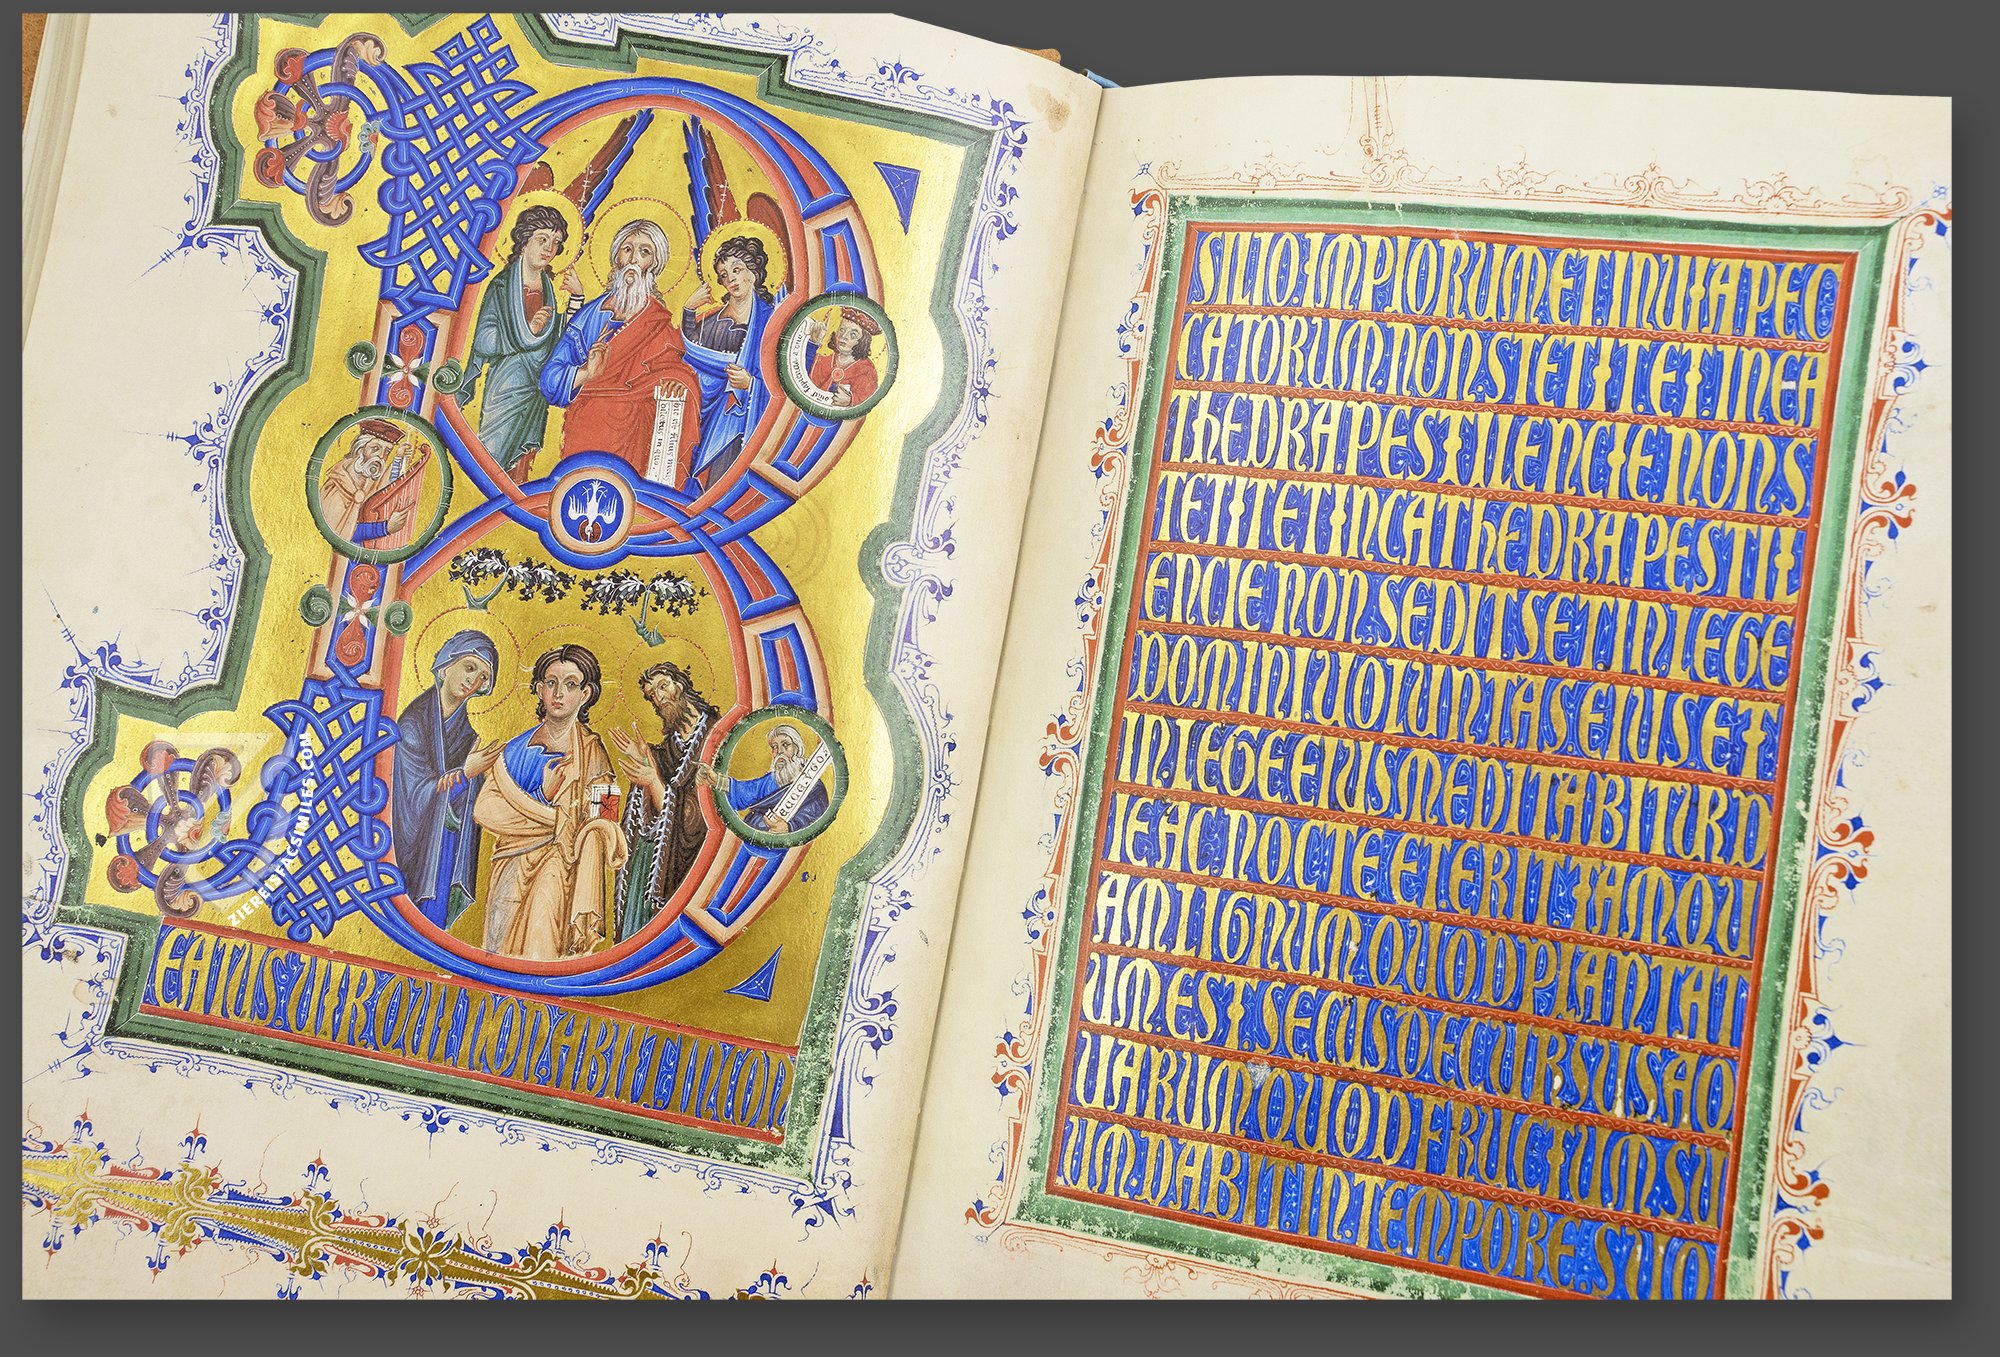 B
EATUS. VIR QUI NON. ABIIT IN CON
ZIEREIS FACSIMILES.COM
SILIO. IMPIORUM ET. IN UIA PEC
CATORUM NON. STETIT ET. IN CA
THEDRA. PESTILENCIE NON S
TETIT ET IN CATHEDRA PESTIL
ENCIE NON. SEDIT SET. IN LEGE
DOMINI. UOLUNTAS. EIUS. ET
IN. LEGE EIUS MEDITABITUR D
IE AC. NOCTE ET. ERIT TAMQU
AM LIGNUM QUOD PLANTAT
UM. EST. SECUS DECURSUS AQ
UARUM QUOD FRUCTUM SU
UM. DABIT IN. TEMPORE. SUO